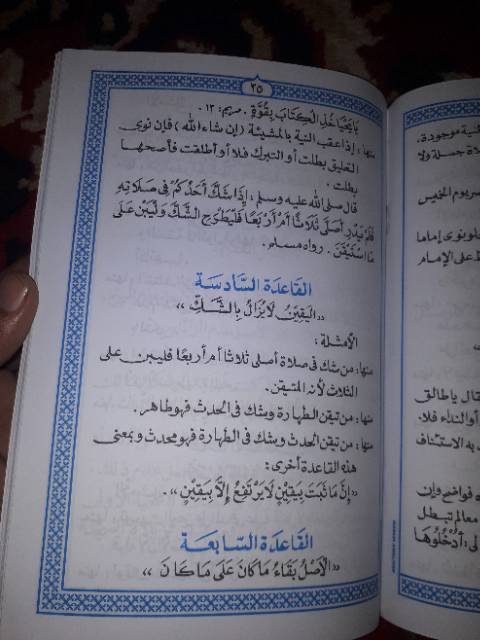 ٢٥
يَا يَحْيَى خُذِ الْكِتَابَ بِقُوَّةٍ . مريم: ١٢ .
منها : إذا عقب النية بالمشيئة (إن شاء الله) فإن نوى
التعليق بطلت أو التبرك فلا أو أطلقت فأصحها
بطلت .
قال صلى الله عليه وسلم : إِذَا شَكَّ أَحَدُكُمْ فِى صَلَاتِهِ
فَلَمْ يَدْرِ أَصَلَّى ثَلَاثًا أَمْ أَرْبَعًا فَلْيَطْرَحِ الشَّكَّ وَلْيَبْنِ عَلَى
مَا اسْتَيْقَنَ . رواه مسلم .
القَاعِدَةُ السَّادِسَةُ
«اليَقِيْنُ لَا يُزَالُ بِالشَّكِّ»
الأمثلة :
منها : من شك فى صلاة أصلى ثلاثا أم أربعا فليبن على
الثلاث لأنه المتيقن .
منها : من تيقن الطهارة وشك فى الحدث فهو طاهر .
منها : من تيقن الحدث وشك فى الطهارة فهو محدث وبمعنى
هذه القاعدة أخرى :
«إِنَّ مَا ثَبَتَ بِيَقِيْنٍ لَا يَرْتَفِعُ إِلَّا بِيَقِيْنٍ» .
القَاعِدَةُ السَّابِعَةُ
«الْأَصْلُ بَقَاءُ مَا كَانَ عَلَى مَا كَانَ»
ية موجودة .
لاة جملة ولا
يوم الخميس
ونوى إماما
على الإمام
قال ياطالق
أو النداء فلا .
به الاستئناف
أُدْخُلُوهَا